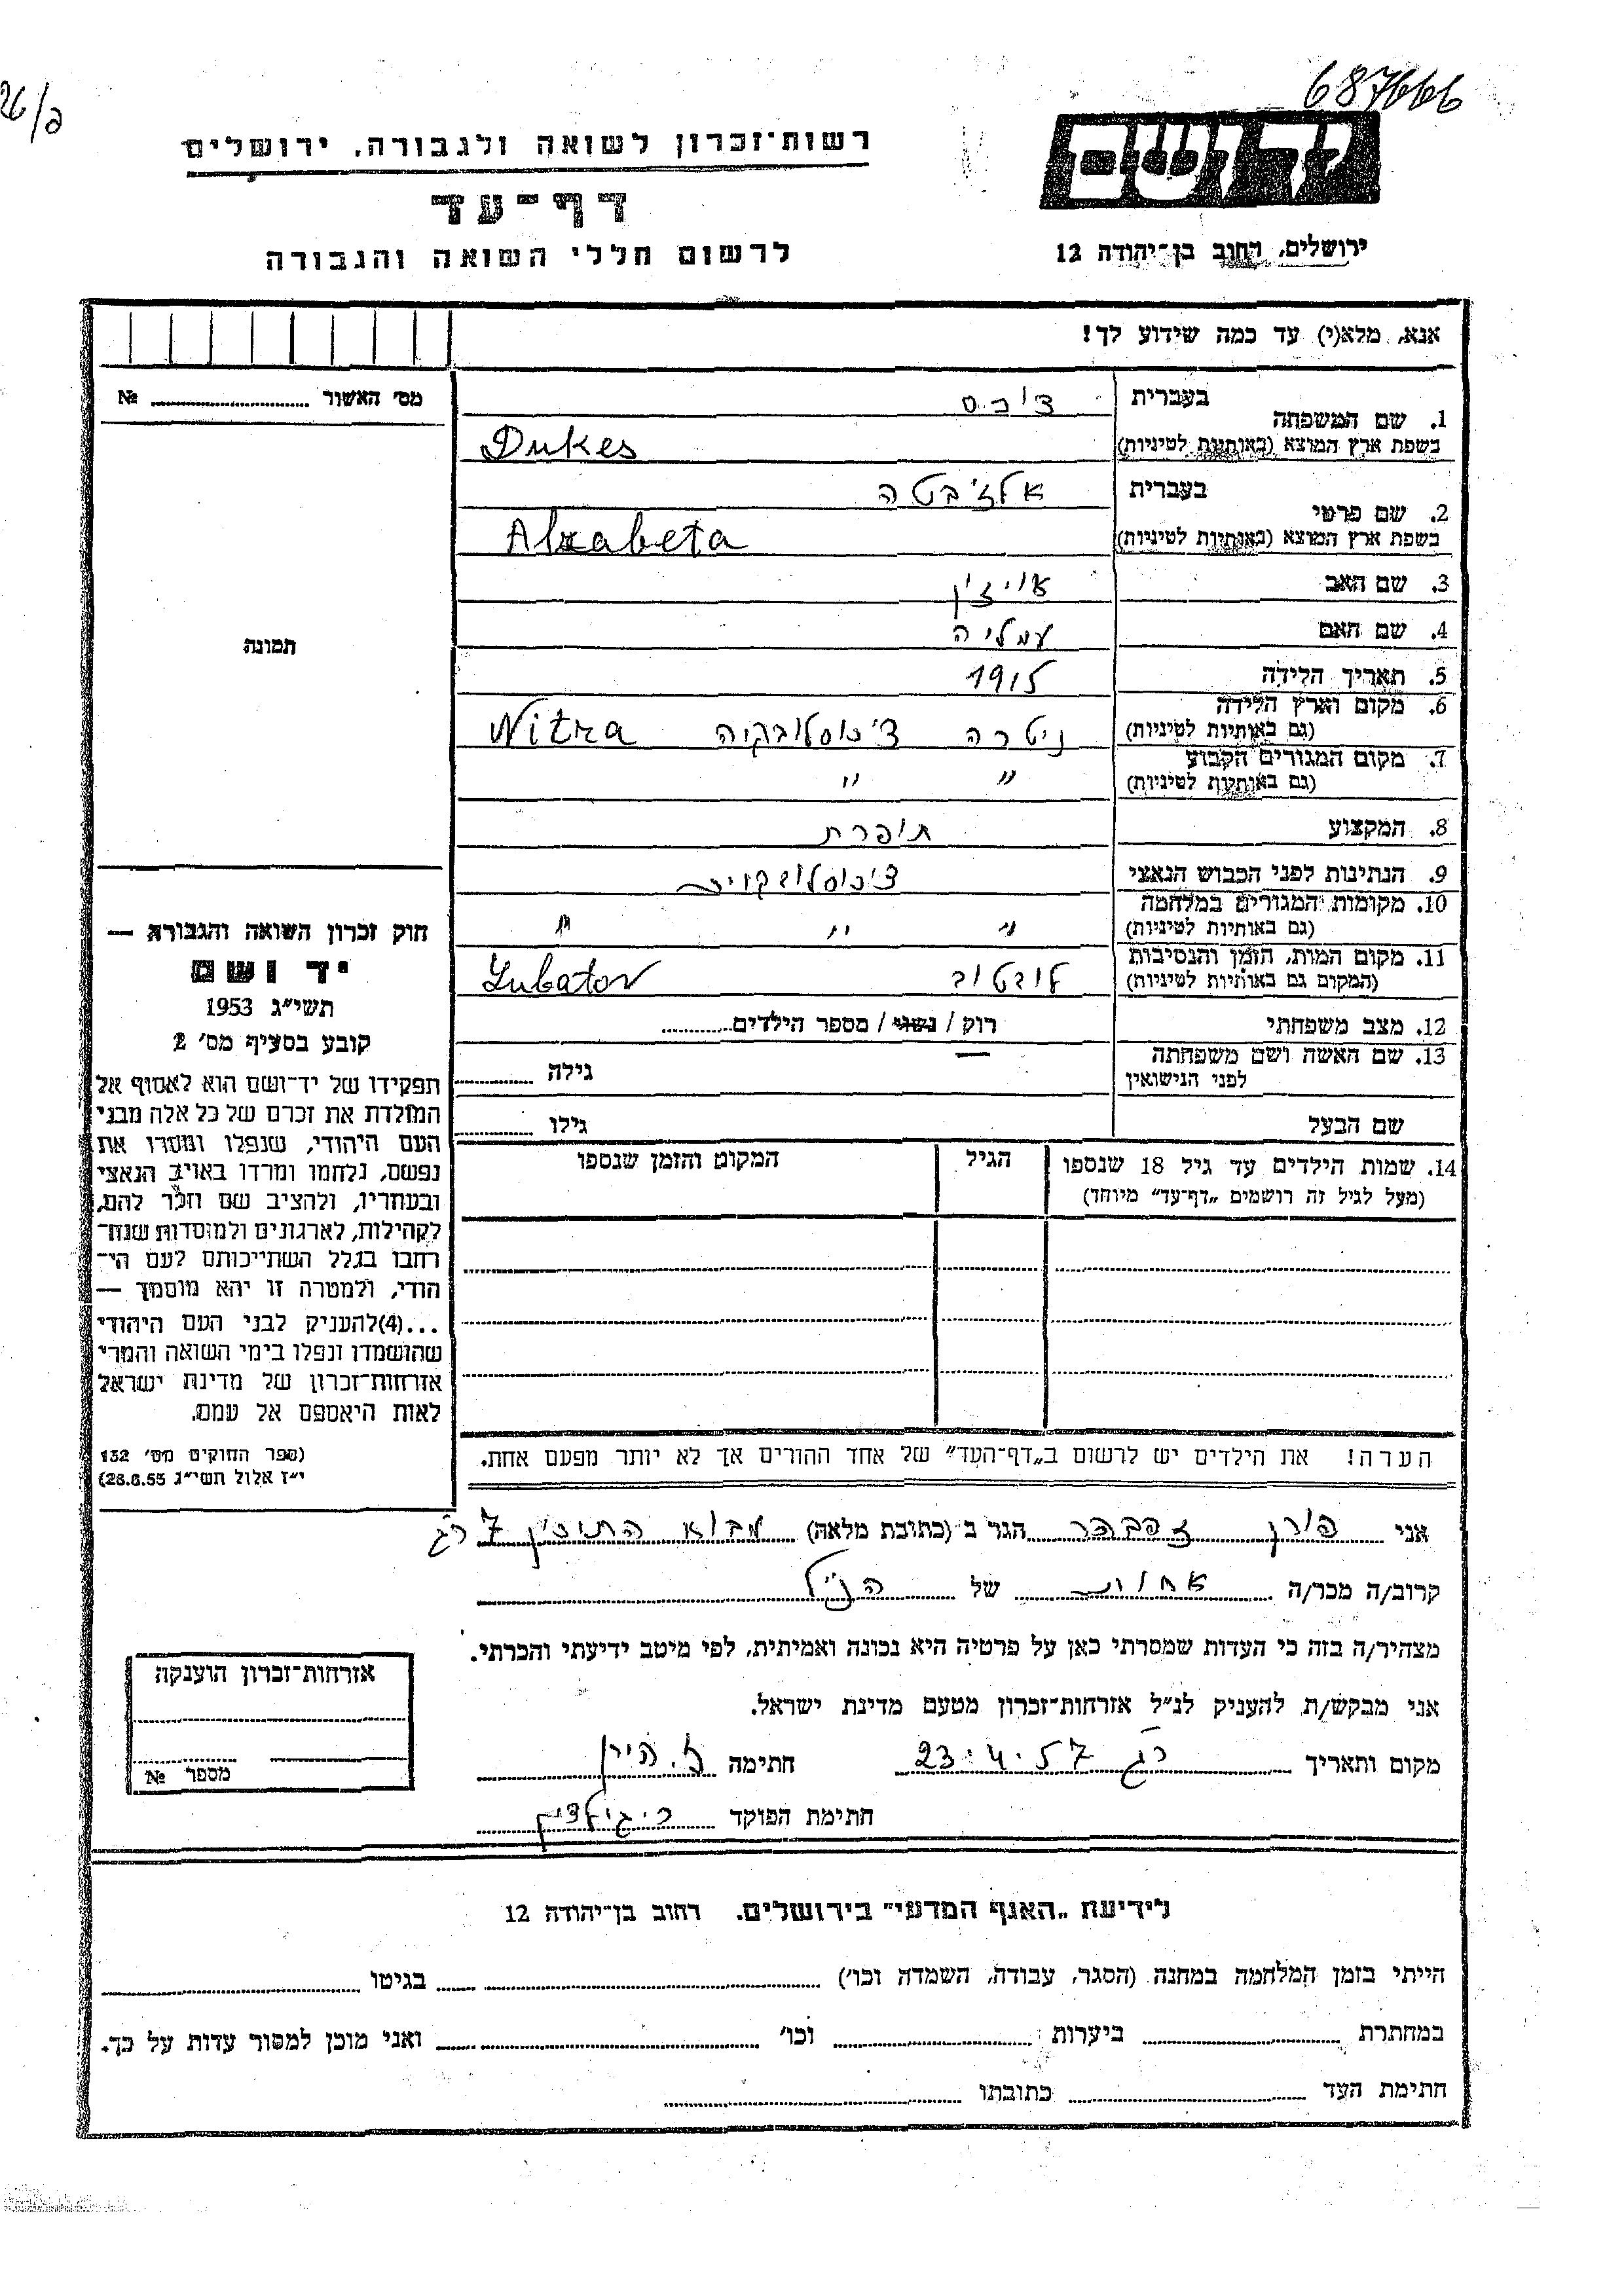 687666
26/פ
רשות־זכרון לשואה ולגבורה, ירושלים
ידושם
דף־עד
ירושלים, רחוב בן־יהודה 12
לרשום חללי השואה והגבורה
אנא, מלא(י) עד כמה שידוע לך!
מס׳ האשור № 
תמונה
1. שם המשפחה בעברית דוכס
בשפת ארץ המוצא (באותיות לטיניות) Dukes
2. שם פרטי בעברית אלז׳בטה
בשפת ארץ המוצא (באותיות לטיניות) Alzabeta
3. שם האב
4. שם האם עמליה
5. תאריך הלידה 1915
6. מקום וארץ הלידה ניטרה צ׳כוסלובקיה Nitra
(גם באותיות לטיניות)
7. מקום המגורים הקבוע
(גם באותיות לטיניות) " "
8. המקצוע תופרת
9. הנתינות לפני הכבוש הנאצי
10. מקומות המגורים במלחמה
(גם באותיות לטיניות) " " "
11. מקום המות, הזמן והנסיבות
(המקום גם באותיות לטיניות) לובטוב Lubatov
12. מצב משפחתי רוק / נשוי / מספר הילדים
13. שם האשה ושם משפחתה
לפני הנישואין — גילה
שם הבעל גילו
14. שמות הילדים עד גיל 18 שנספו הגיל המקום והזמן שנספו
(מעל לגיל זה רושמים „דף־עד״ מיוחד)
הערה! את הילדים יש לרשום ב„דף־העד״ של אחד ההורים אך לא יותר מפעם אחת.
חוק זכרון השואה והגבורה —
יד ושם
תשי״ג 1953
קובע בסעיף מס׳ 2
תפקידו של יד־ושם הוא לאסוף אל
המולדת את זכרם של כל אלה מבני
העם היהודי, שנפלו ומסרו את
נפשם, נלחמו ומרדו באויב הנאצי
ובעוזריו, ולהציב שם וזכר להם,
לקהילות, לארגונים ולמוסדות שנח־
רחבו בגלל השתייכותם לעם הי־
הודי, ולמטרה זו יהא מוסמך —
...(4)להעניק לבני העם היהודי
שהושמדו ונפלו בימי השואה והמרי
אזרחות־זכרון של מדינת ישראל
לאות היאספם אל עמם.
(ספר החוקים מס׳ 132
י״ז אלול תשי״ג 28.8.55)
אני הגר ב־(כתובת מלאה) מבוא 7 רג
קרוב/ה מכר/ה אחות של הנ״ל
מצהיר/ה בזה כי העדות שמסרתי כאן על פרטיה היא נכונה ואמיתית, לפי מיטב ידיעתי והכרתי.
אני מבקש/ת להעניק לנ״ל אזרחות־זכרון מטעם מדינת ישראל.
מקום ותאריך רג 23.4.57 חתימה
חתימת הפוקד
אזרחות־זכרון הוענקה
מספר №
לידיעת „האגף המדעי״ בירושלים. רחוב בן־יהודה 12
הייתי בזמן המלחמה במחנה (הסגר, עבודה, השמדה וכו׳) בגיטו
במחתרת ביערות וכו׳ ואני מוכן למסור עדות על כך.
חתימת העד כתובתו